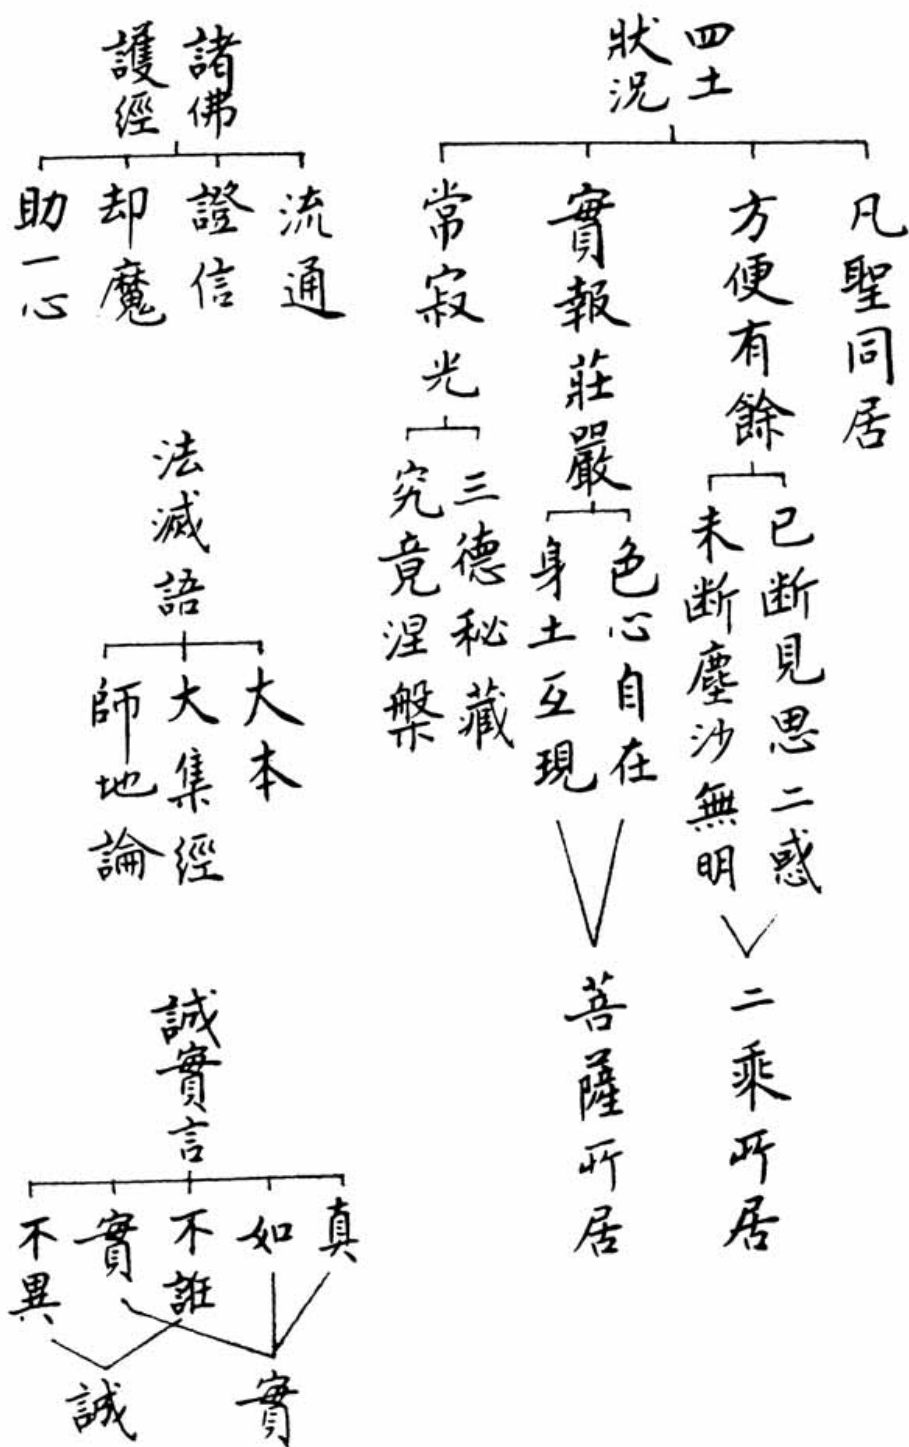 四土
狀況
凡聖同居
方便有餘
已斷見思二惑
未斷塵沙無明
二乘所居
實報莊嚴
色心自在
身土互現
菩薩所居
常寂光
三德秘藏
究竟涅槃
諸佛
護經
流通
證信
却魔
助一心
法滅語
大本
大集經
師地論
誠實言
真
如
不誑
實
不異
實
誠